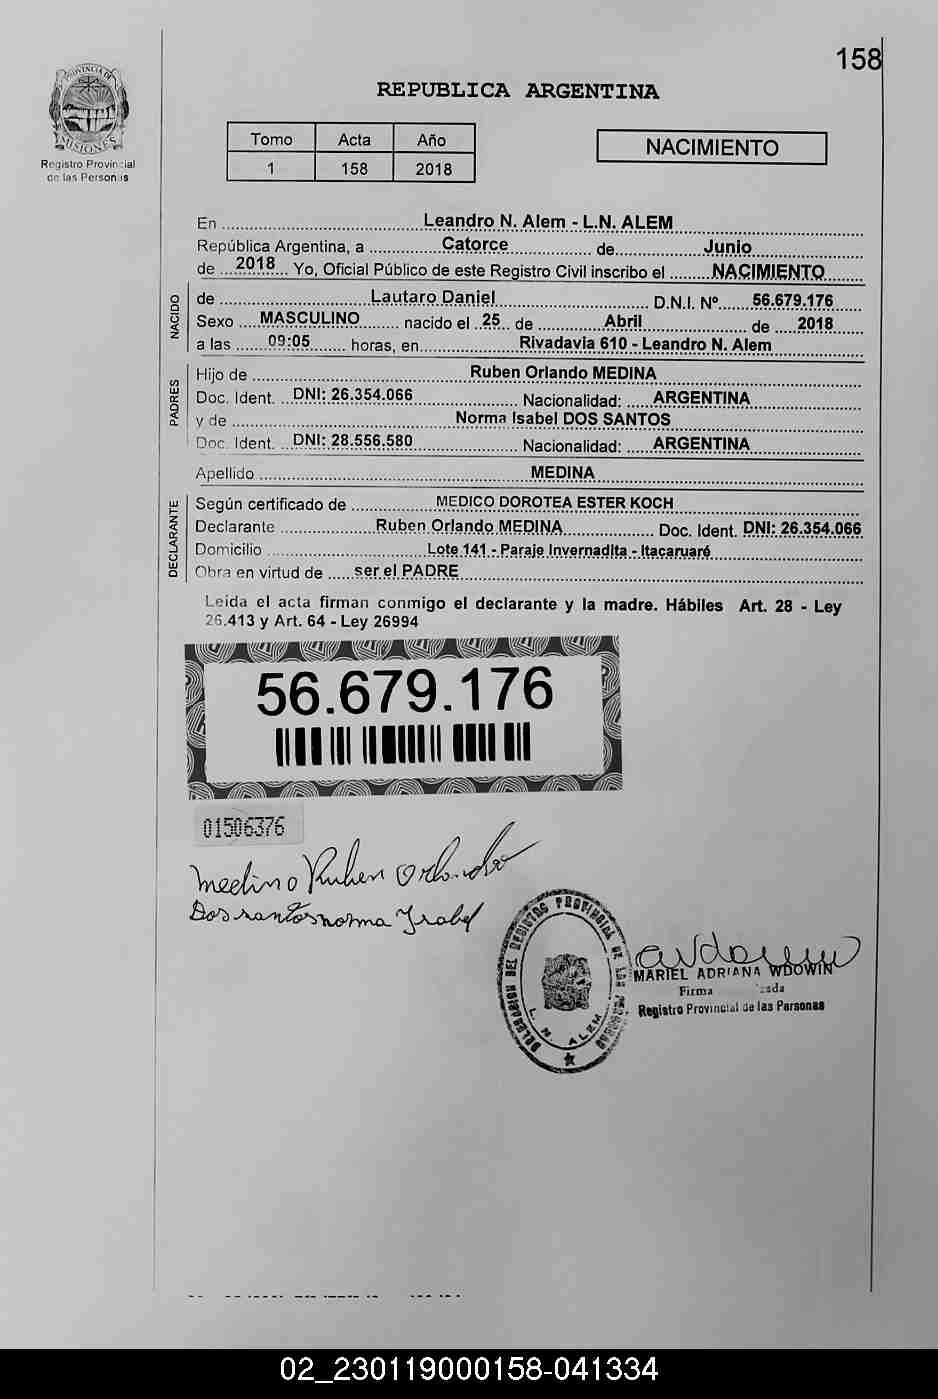 158
PROVINCIA DE
MISIONES
Registro Provincial
de las Personas
REPUBLICA ARGENTINA
Tomo Acta Año
1 158 2018
NACIMIENTO
En Leandro N. Alem - L.N. ALEM
República Argentina, a Catorce de Junio
de 2018 Yo, Oficial Público de este Registro Civil inscribo el NACIMIENTO
NACIDO
de Lautaro Daniel D.N.I. Nº 56.679.176
Sexo MASCULINO nacido el 25 de Abril de 2018
a las 09:05 horas, en Rivadavia 610 - Leandro N. Alem
PADRES
Hijo de Ruben Orlando MEDINA
Doc. Ident. DNI: 26.354.066 Nacionalidad: ARGENTINA
y de Norma Isabel DOS SANTOS
Doc. Ident. DNI: 28.556.580 Nacionalidad: ARGENTINA
Apellido MEDINA
DECLARANTE
Según certificado de MEDICO DOROTEA ESTER KOCH
Declarante Ruben Orlando MEDINA Doc. Ident. DNI: 26.354.066
Domicilio Lote 141 - Paraje Invernadita - Itacaruaré
Obra en virtud de ser el PADRE
Leida el acta firman conmigo el declarante y la madre. Hábiles Art. 28 - Ley
26.413 y Art. 64 - Ley 26994
56.679.176
01506376
Medina Ruben Orlando
Dos santos norma Isabel
DELEGACION DEL REGISTRO PROVINCIAL DE LAS PERSONAS
L. N. ALEM
MARIEL ADRIANA WDOWIN
Firma
Registro Provincial de las Personas
02_230119000158-041334